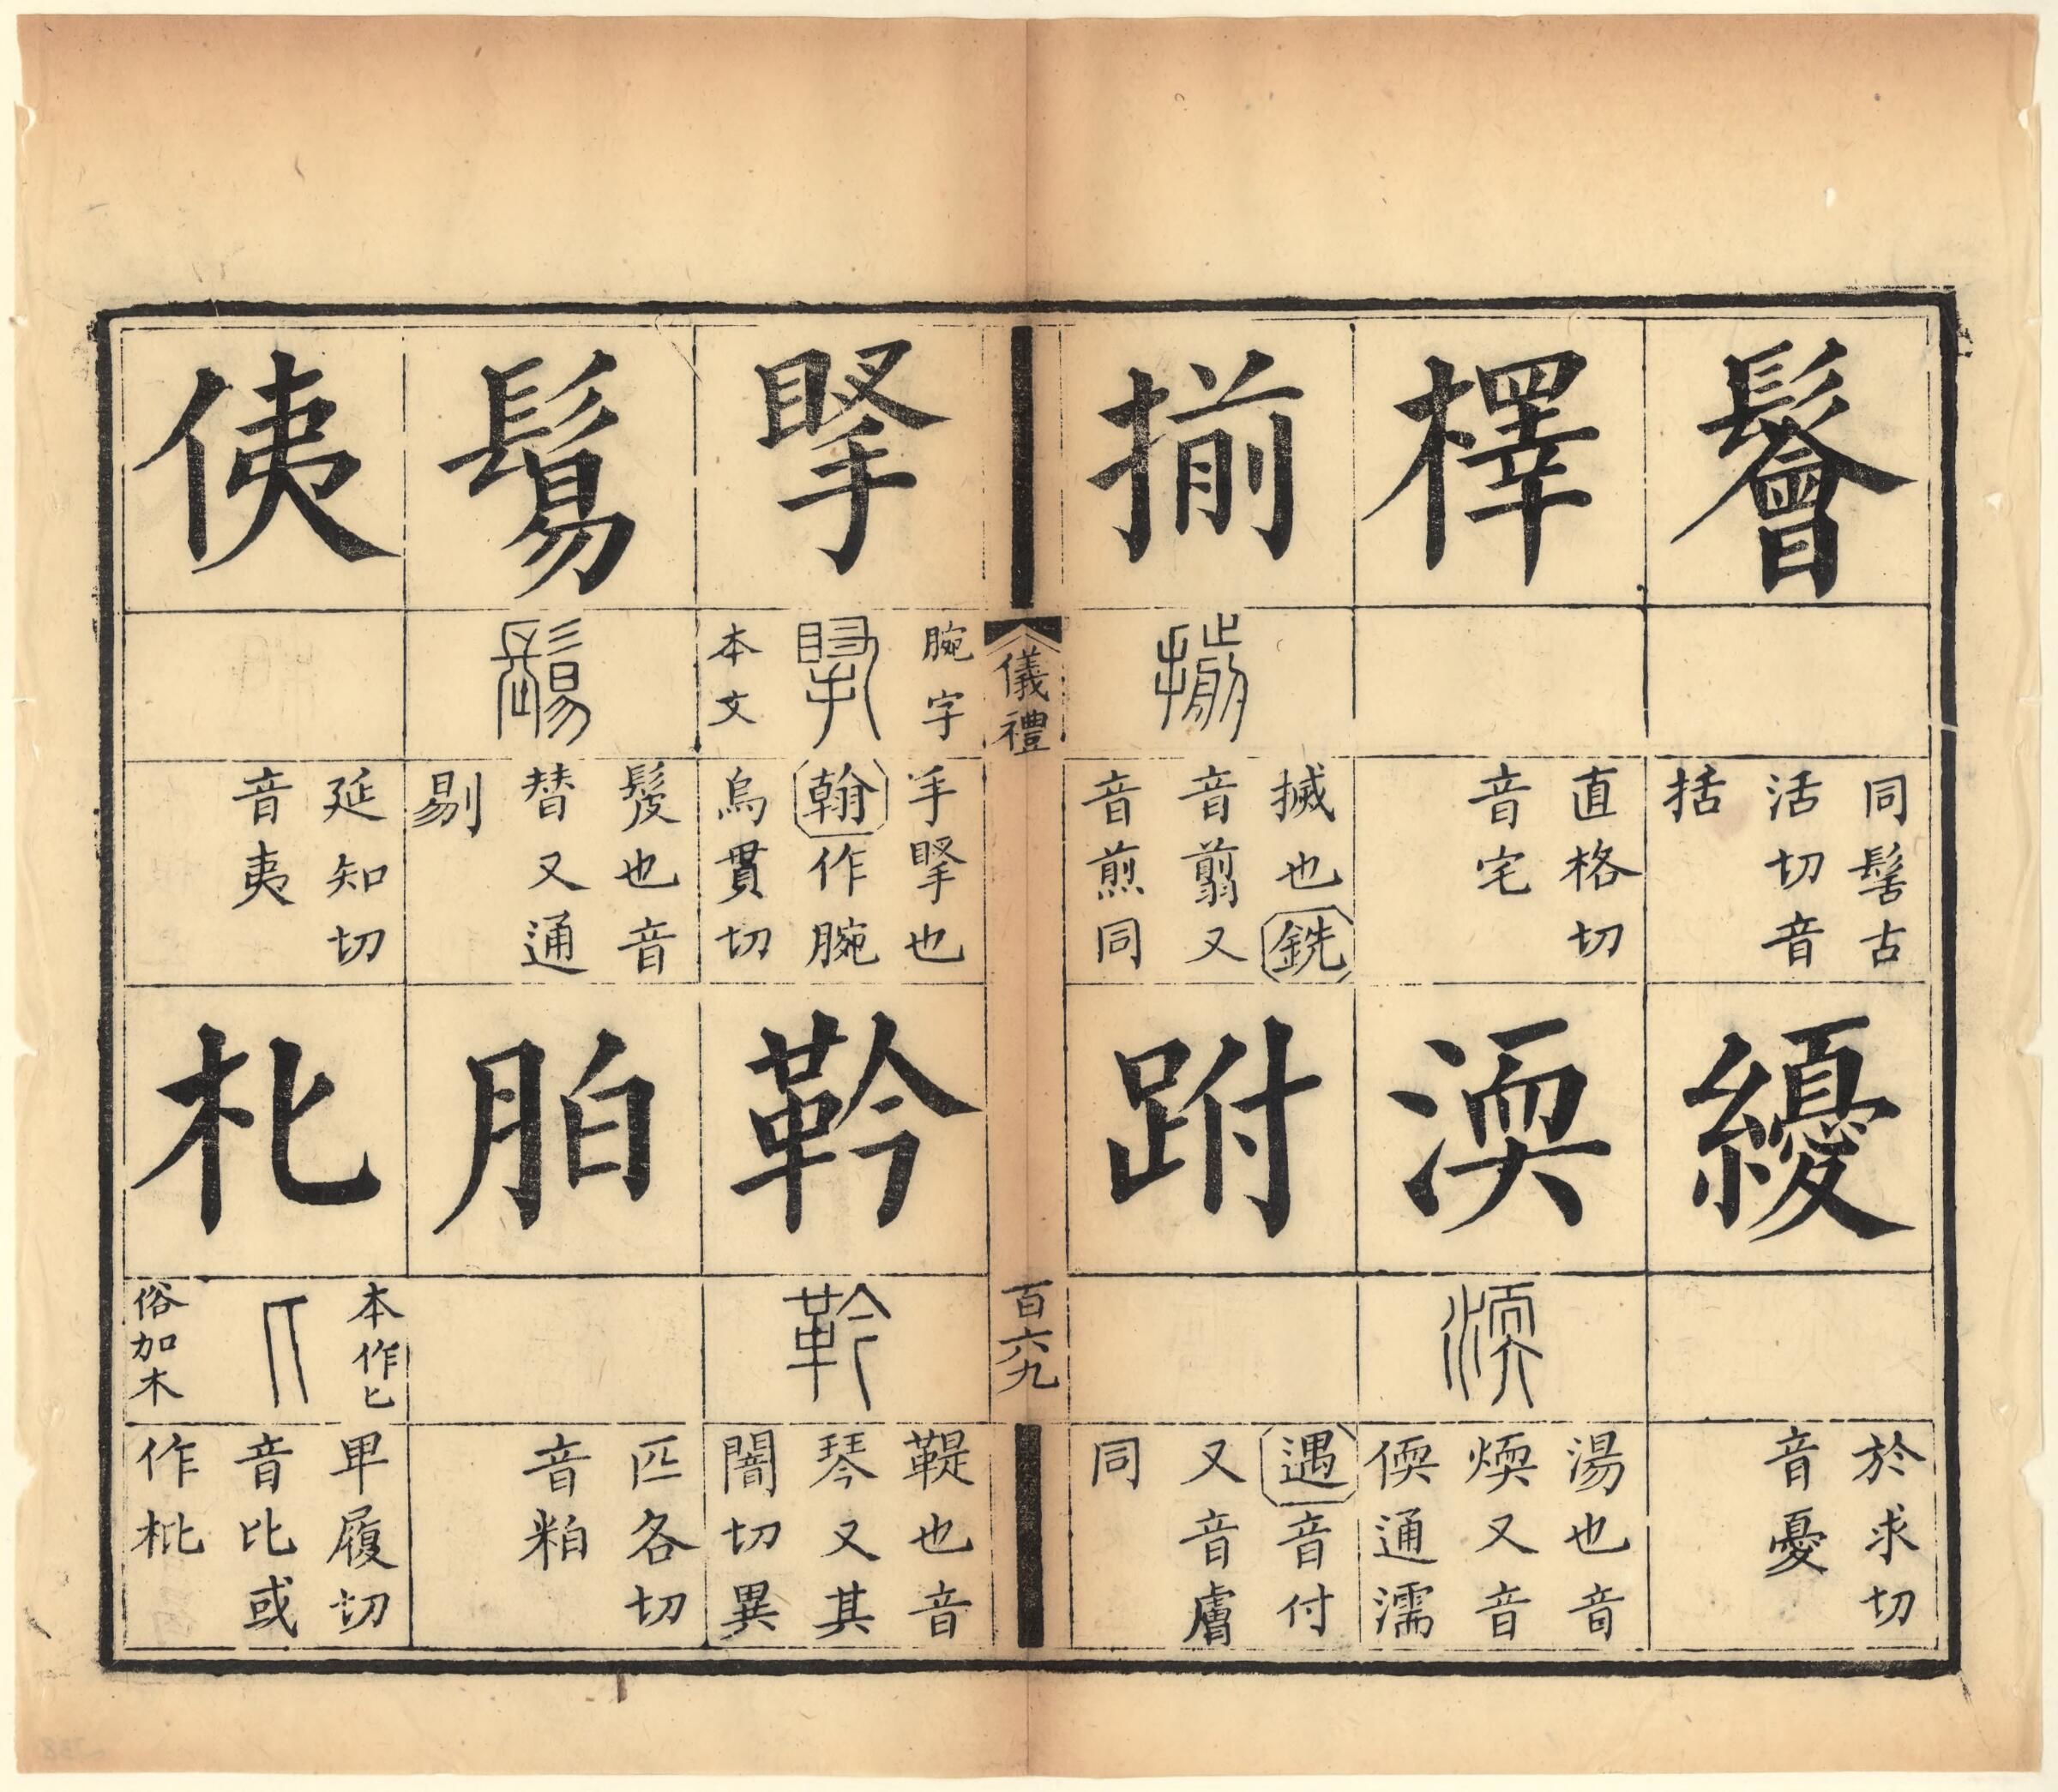 鬠
同髺古
活切音
括
纋
於求切
音憂
檡
直格切
音宅
渜
渜
湯也音
煗又音
偄通濡
揃
揃
搣也銑
音翦又
音煎同
跗
遇音付
又音膚
同
儀禮
百六九
掔
腕字
掔
本文
手掔也
翰作腕
烏貫切
靲
靲
鞮也音
琴又其
闇切異
鬄
鬄
髲也音
替又通
剔
胉
匹各切
音粕
侇
延知切
音夷
朼
本作匕
匕
俗加木
卑履切
音比或
作枇